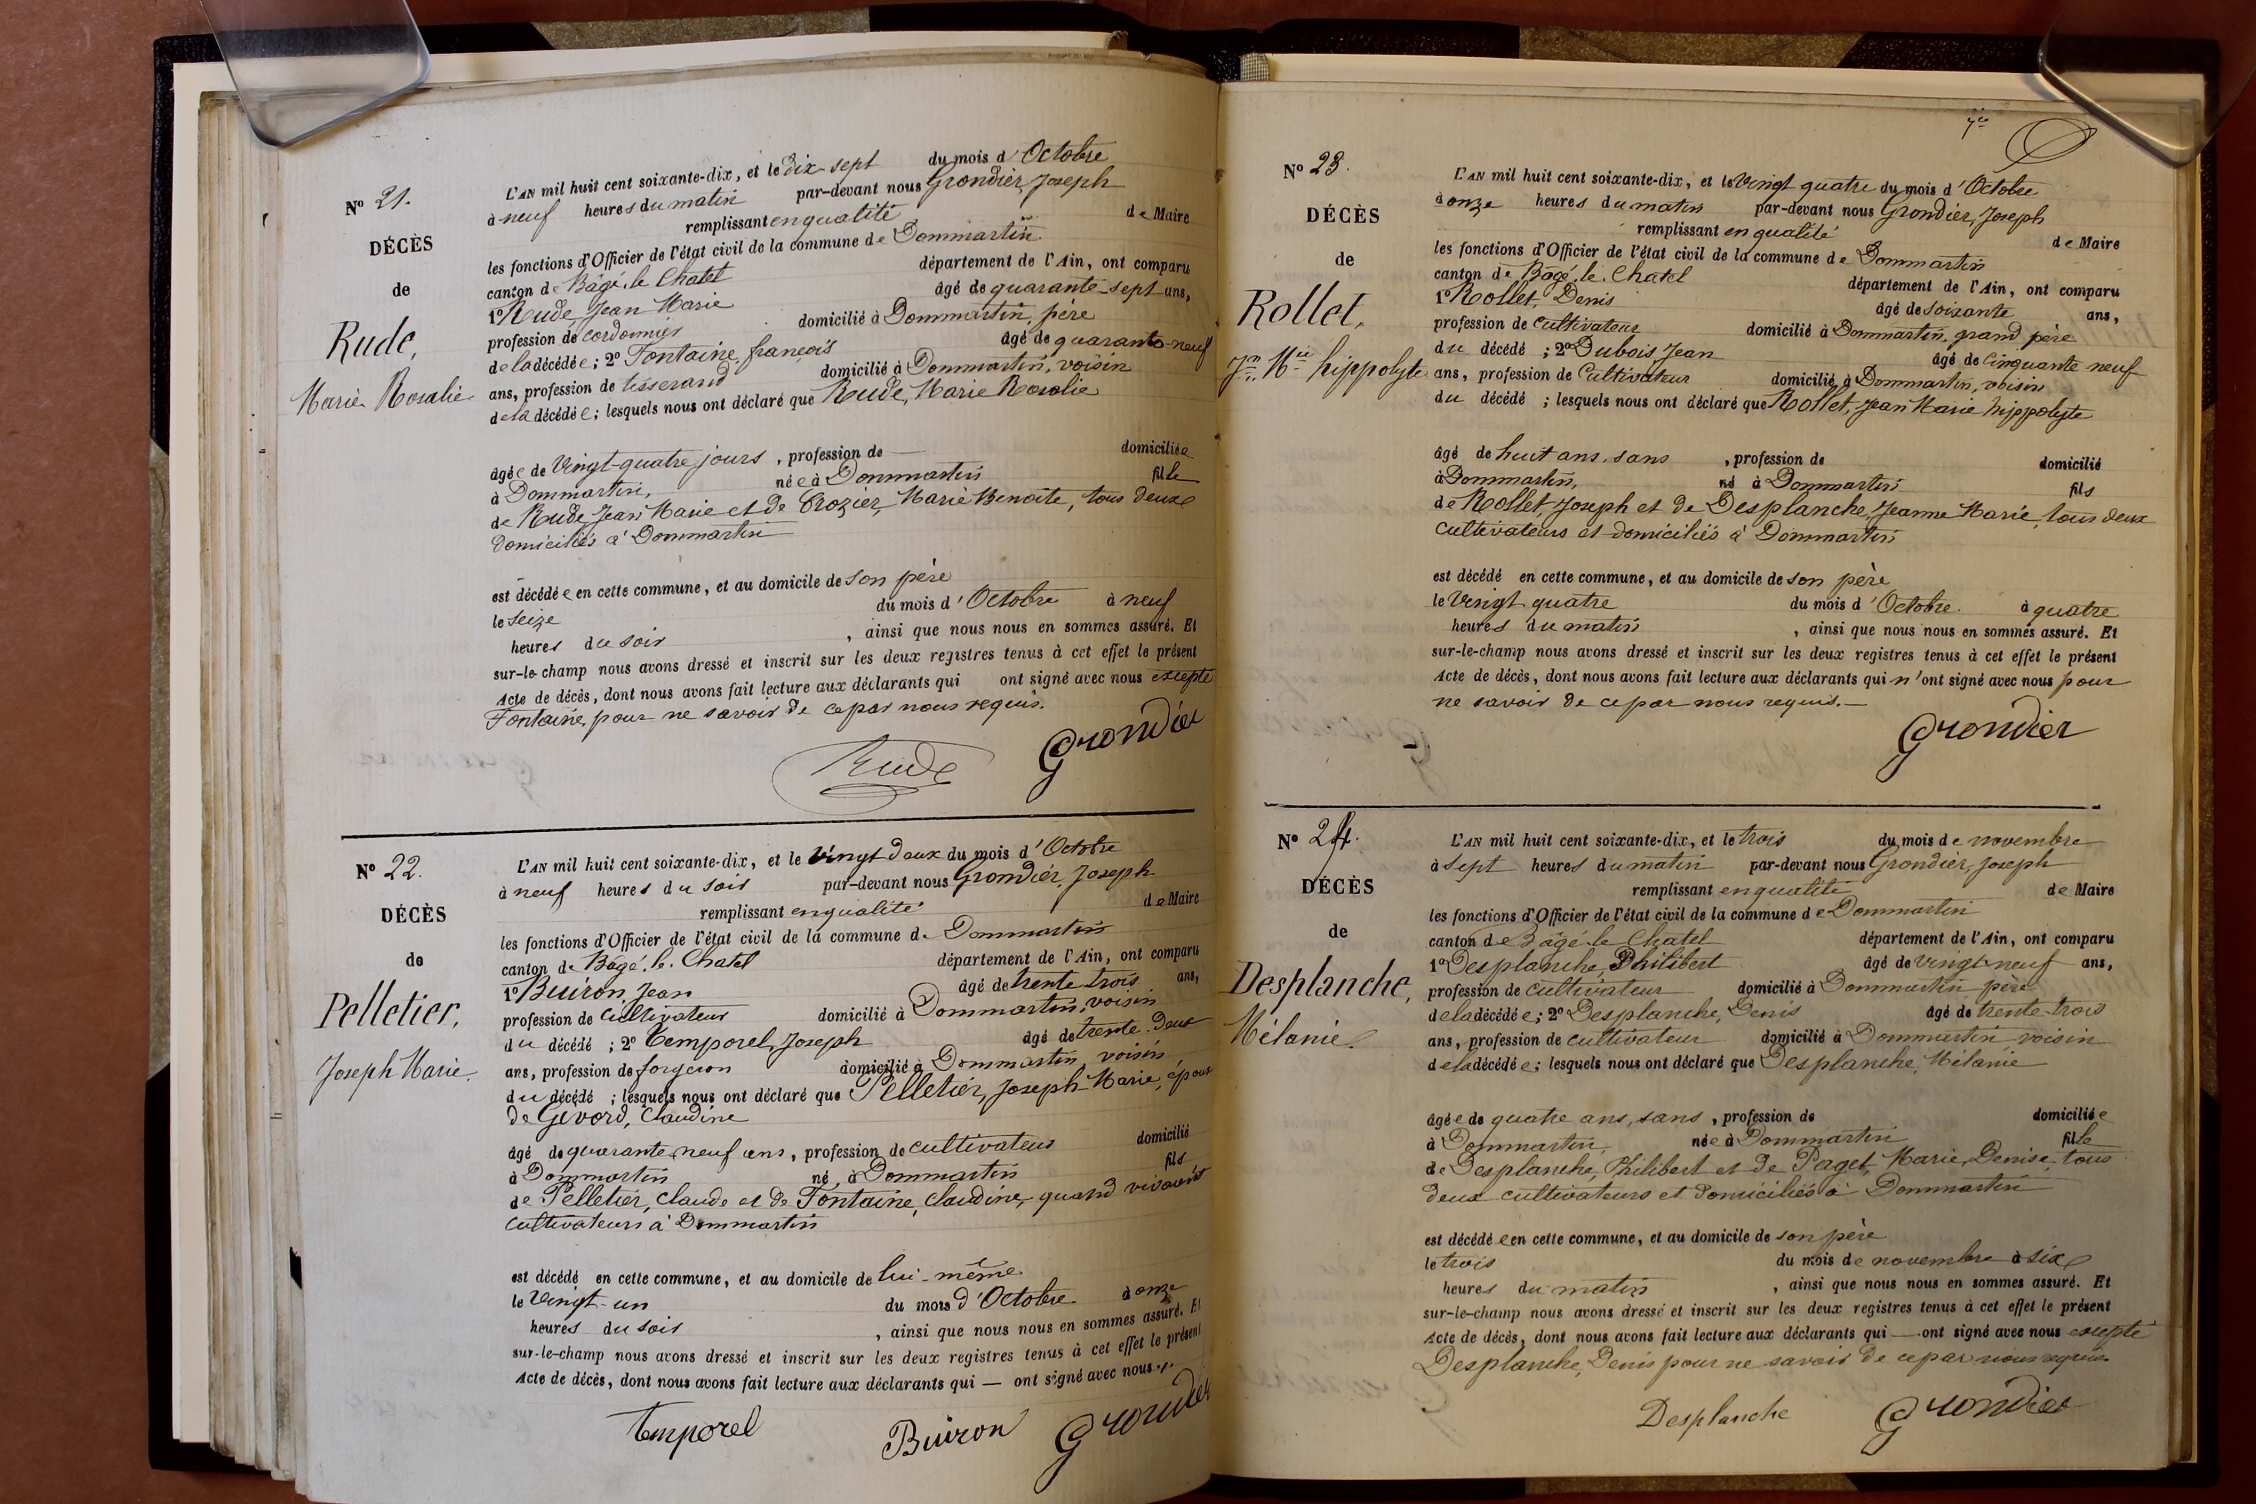 N° 21.
DÉCÈS
de
Rude,
Marie Rosalie
L'AN mil huit cent soixante-dix, et le dix-sept du mois d'Octobre
à neuf heures du matin par-devant nous Grondier, Joseph
remplissant en qualité de Maire
les fonctions d'Officier de l'état civil de la commune de Dommartin
canton de Bâgé-le-Chatel département de l'Ain, ont comparu
1° Rude, Jean Marie âgé de quarante-sept ans,
profession de cordonnier domicilié à Dommartin, père
de la décédée; 2° Fontaine, françois âgé de quarante-neuf
ans, profession de tisserand domicilié à Dommartin, voisin
de la décédée; lesquels nous ont déclaré que Rude, Marie Rosalie
âgée de Vingt-quatre jours, profession de — domiciliée
à Dommartin, née à Dommartin fille
de Rude, Jean Marie et de Crozier, Marie Benoîte, tous deux
domiciliés à Dommartin
est décédée en cette commune, et au domicile de son père
le seize du mois d'Octobre à neuf
heures du soir, ainsi que nous nous en sommes assuré. Et
sur-le-champ nous avons dressé et inscrit sur les deux registres tenus à cet effet le présent
Acte de décès, dont nous avons fait lecture aux déclarants qui ont signé avec nous excepté
Fontaine, pour ne savoir de ce par nous requis.
Rude Grondier
N° 22.
DÉCÈS
de
Pelletier,
Joseph Marie
L'AN mil huit cent soixante-dix, et le Vingt deux du mois d'Octobre
à neuf heures du soir par-devant nous Grondier, Joseph
remplissant en qualité de Maire
les fonctions d'Officier de l'état civil de la commune de Dommartin
canton de Bâgé-le-Chatel département de l'Ain, ont comparu
1° Buiron, Jean âgé de trente trois ans,
profession de Cultivateur domicilié à Dommartin, voisin
du décédé; 2° Temporel, Joseph âgé de trente-deux
ans, profession de forgeron domicilié à Dommartin, voisin
du décédé; lesquels nous ont déclaré que Pelletier, Joseph-Marie, époux
de Gevord, Claudine
âgé de quarante neuf ans, profession de cultivateur domicilié
à Dommartin né à Dommartin fils
de Pelletier, Claude et de Fontaine, Claudine, quand vivaient
cultivateurs à Dommartin
est décédé en cette commune, et au domicile de lui-même
le Vingt-un du mois d'Octobre à onze
heures du soir, ainsi que nous nous en sommes assuré. Et
sur-le-champ nous avons dressé et inscrit sur les deux registres tenus à cet effet le présent
Acte de décès, dont nous avons fait lecture aux déclarants qui — ont signé avec nous
Temporel Buiron Grondier
N° 23.
DÉCÈS
de
Rollet,
Jn Mie hippolyte
L'AN mil huit cent soixante-dix, et le Vingt quatre du mois d'Octobre
à onze heures du matin par-devant nous Grondier, Joseph
remplissant en qualité de Maire
les fonctions d'Officier de l'état civil de la commune de Dommartin
canton de Bâgé-le-Chatel département de l'Ain, ont comparu
1° Rollet, Denis âgé de soixante ans,
profession de cultivateur domicilié à Dommartin, grand père
du décédé; 2° Dubois Jean âgé de Cinquante neuf
ans, profession de Cultivateur domicilié à Dommartin, voisin
du décédé; lesquels nous ont déclaré que Rollet, Jean Marie hippolyte
âgé de huit ans, sans, profession de domicilié
à Dommartin, né à Dommartin fils
de Rollet, Joseph et de Desplanche, Jeanne Marie, tous deux
cultivateurs et domiciliés à Dommartin
est décédé en cette commune, et au domicile de son père
le Vingt quatre du mois d'Octobre à quatre
heures du matin, ainsi que nous nous en sommes assuré. Et
sur-le-champ nous avons dressé et inscrit sur les deux registres tenus à cet effet le présent
Acte de décès, dont nous avons fait lecture aux déclarants qui n'ont signé avec nous pour
ne savoir de ce par nous requis.—
Grondier
N° 24.
DÉCÈS
de
Desplanche,
Mélanie
L'AN mil huit cent soixante-dix, et le trois du mois de novembre
à sept heures du matin par-devant nous Grondier, Joseph
remplissant en qualité de Maire
les fonctions d'Officier de l'état civil de la commune de Dommartin
canton de Bâgé-le-Chatel département de l'Ain, ont comparu
1° Desplanche, Philibert âgé de vingt-neuf ans,
profession de cultivateur domicilié à Dommartin père
de la décédée; 2° Desplanche, Denis âgé de trente-trois
ans, profession de cultivateur domicilié à Dommartin voisin
de la décédée; lesquels nous ont déclaré que Desplanche, Mélanie
âgée de quatre ans, sans, profession de domiciliée
à Dommartin, née à Dommartin fille
de Desplanche, Philibert et de Paget, Marie Denise, tous
deux cultivateurs et domiciliés à Dommartin
est décédée en cette commune, et au domicile de son père
le trois du mois de novembre à six
heures du matin, ainsi que nous nous en sommes assuré. Et
sur-le-champ nous avons dressé et inscrit sur les deux registres tenus à cet effet le présent
Acte de décès, dont nous avons fait lecture aux déclarants qui — ont signé avec nous excepté
Desplanche, Denis pour ne savoir de ce par nous requis.
Desplanche Grondier